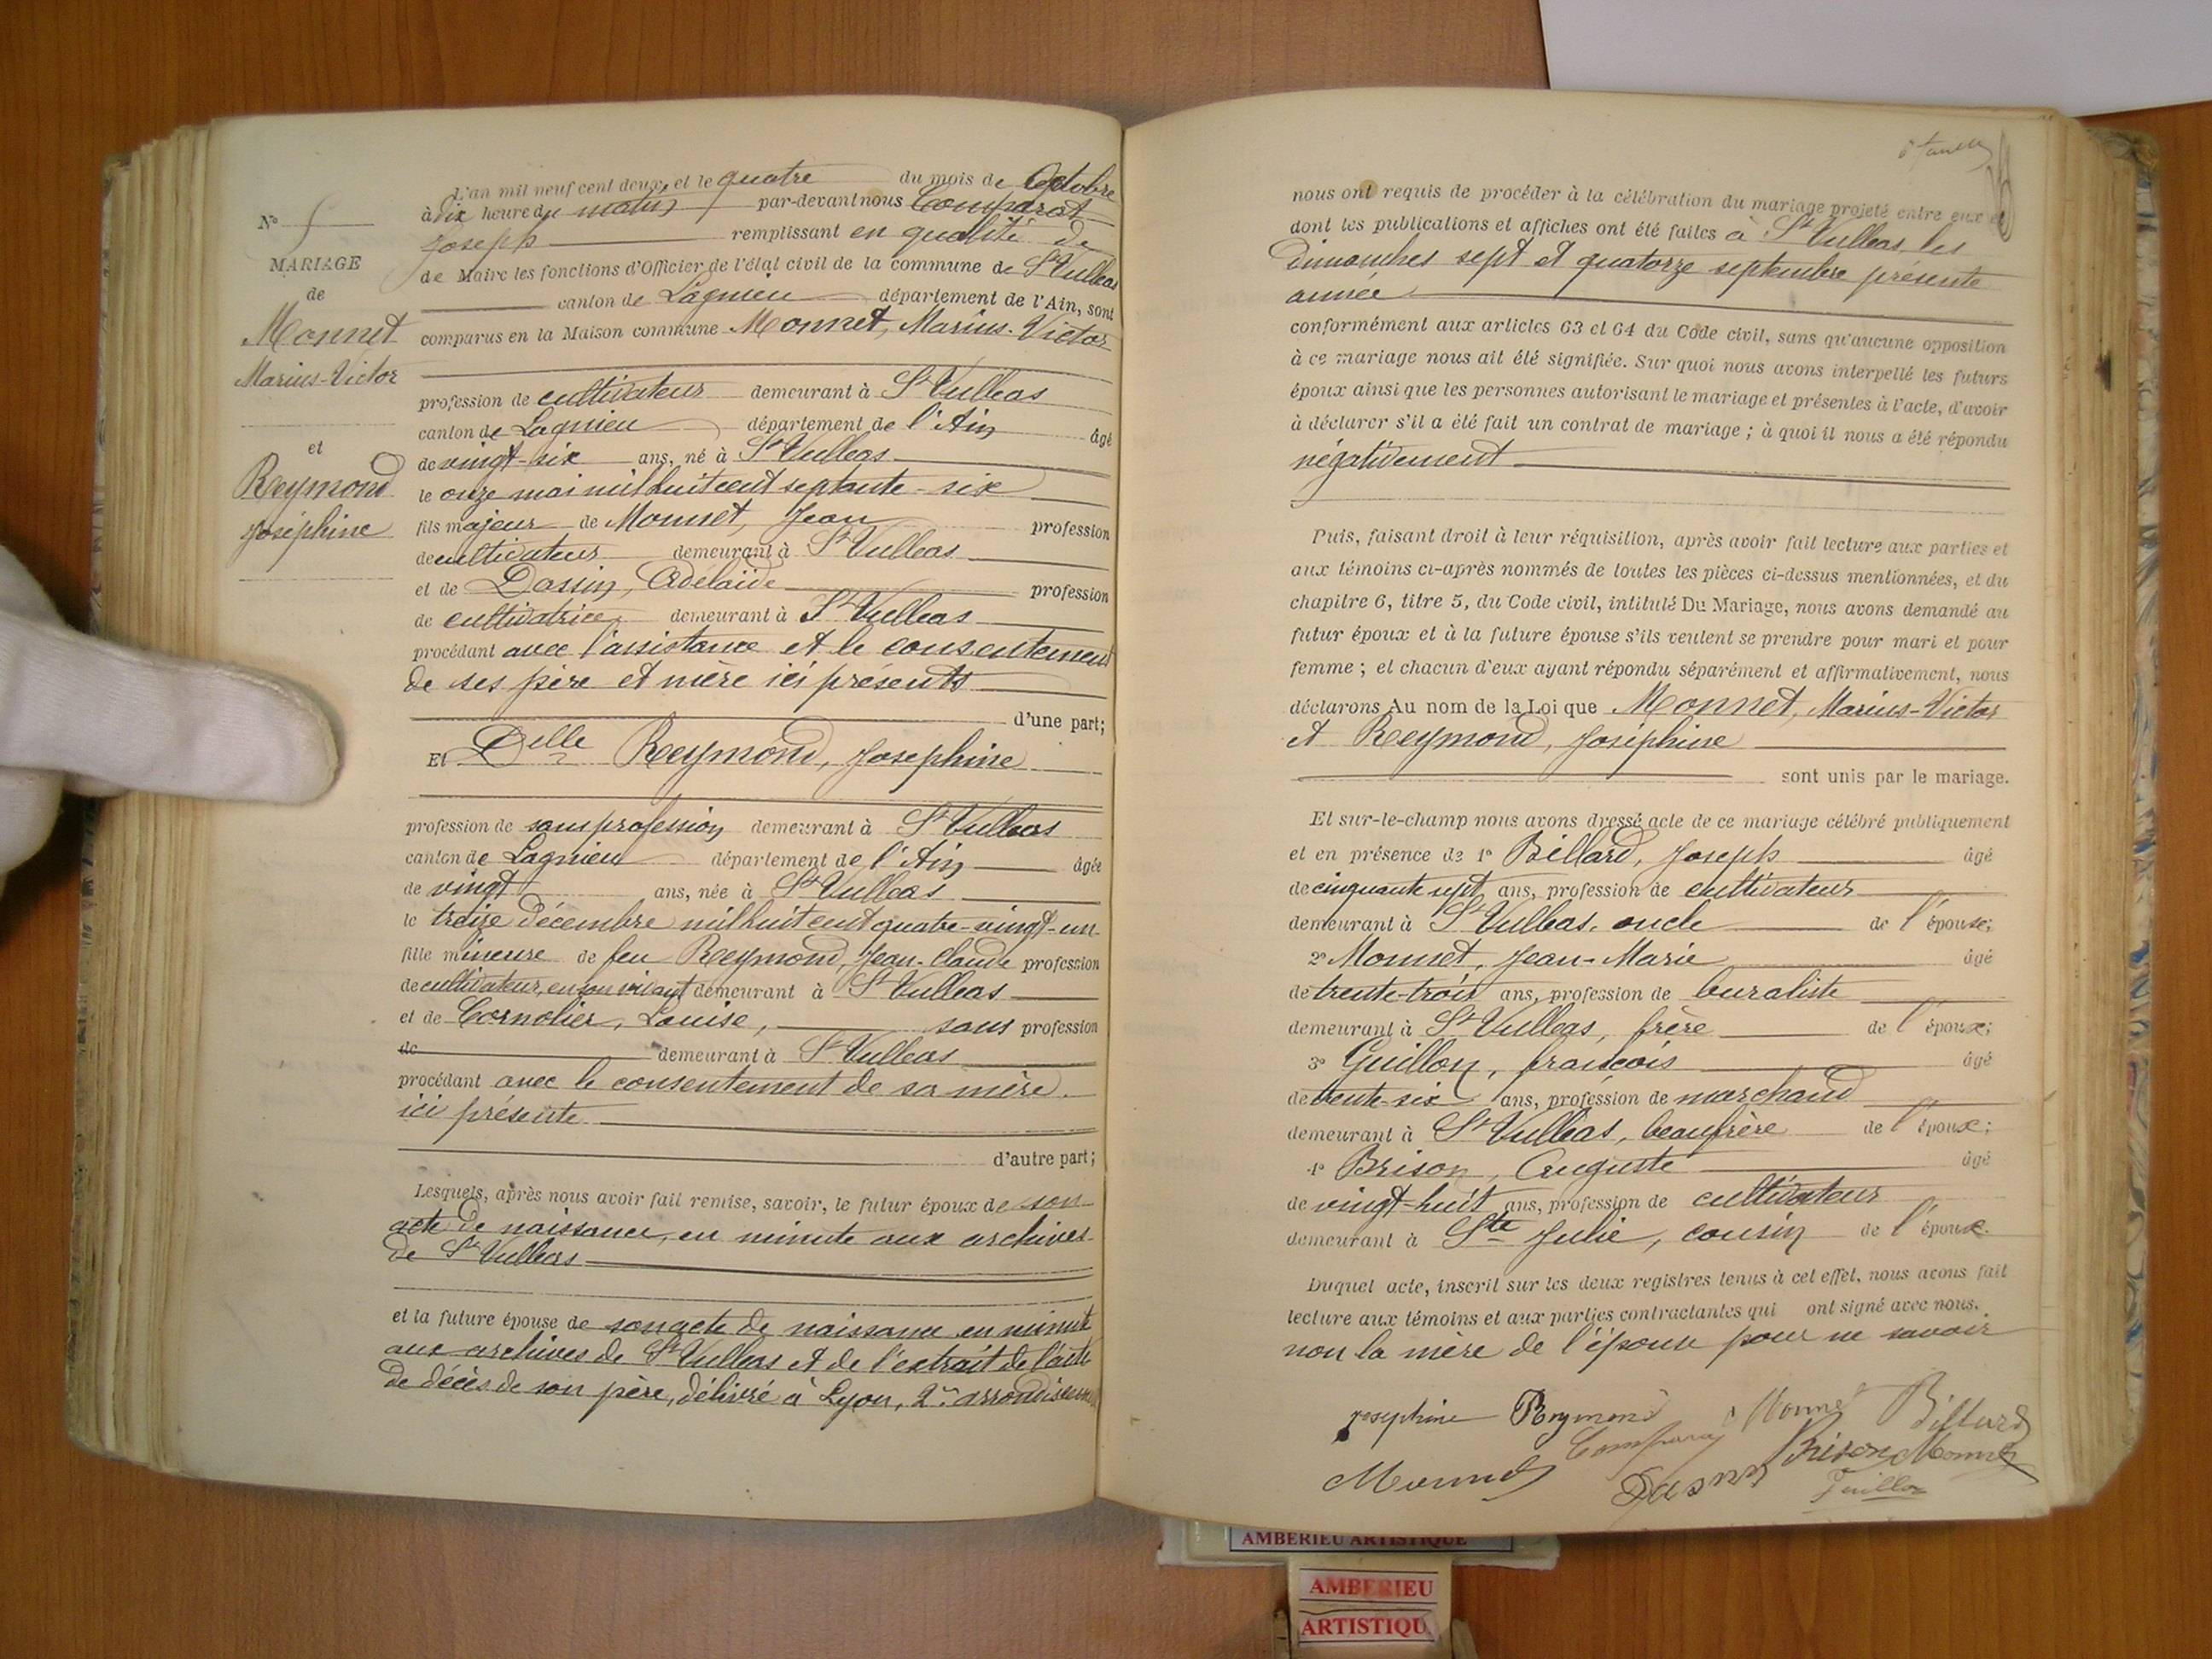 N°
MARIAGE
de
Monnet
Marius-Victor
et
Reymond
Joséphine
L'an mil neuf cent deux, et le quatre du mois de Octobre
à dix heure du matin par-devant nous Comparat
Joseph remplissant en qualité de
de Maire les fonctions d'Officier de l'état civil de la commune de St Vulbas
canton de Lagnieu département de l'Ain, sont
comparus en la Maison commune Monnet, Marius-Victor
profession de cultivateur demeurant à St Vulbas
canton de Lagnieu département de l'Ain âgé
de vingt-six ans, né à St Vulbas
le onze mai mil huit cent septante-six
fils majeur de Monnet, Jean profession
de cultivateur demeurant à St Vulbas
et de Dassin, Adélaïde profession
de cultivatrice demeurant à St Vulbas
procédant avec l'assistance et le consentement
de ses père et mère ici présents
d'une part;
Et Delle Reymond, Joséphine
profession de sans profession demeurant à St Vulbas
canton de Lagnieu département de l'Ain âgée
de vingt ans, née à St Vulbas
le treize décembre mil huit cent quatre-vingt-un
fille mineure de feu Reymond, Jean-Claude profession
de cultivateur, en son vivant demeurant à St Vulbas
et de Cornolier, Louise, sans profession
de demeurant à St Vulbas
procédant avec le consentement de sa mère
ici présente
d'autre part;
Lesquels, après nous avoir fait remise, savoir, le futur époux de son
acte de naissance, en minute aux archives
de St Vulbas
et la future épouse de son acte de naissance en minute
aux archives de St Vulbas et de l'extrait de l'acte
de décès de son père, délivré à Lyon, 2e arrondissement
nous ont requis de procéder à la célébration du mariage projeté entre eux et
dont les publications et affiches ont été faites à St Vulbas, les
Dimanches sept et quatorze septembre présente
année
conformément aux articles 63 et 64 du Code civil, sans qu'aucune opposition
à ce mariage nous ait été signifiée. Sur quoi nous avons interpellé les futurs
époux ainsi que les personnes autorisant le mariage et présentes à l'acte, d'avoir
à déclarer s'il a été fait un contrat de mariage; à quoi il nous a été répondu
négativement
Puis, faisant droit à leur réquisition, après avoir fait lecture aux parties et
aux témoins ci-après nommés de toutes les pièces ci-dessus mentionnées, et du
chapitre 6, titre 5, du Code civil, intitulé Du Mariage, nous avons demandé au
futur époux et à la future épouse s'ils veulent se prendre pour mari et pour
femme; et chacun d'eux ayant répondu séparément et affirmativement, nous
déclarons Au nom de la Loi que Monnet, Marius-Victor
et Reymond, Joséphine
sont unis par le mariage.
Et sur-le-champ nous avons dressé acte de ce mariage célébré publiquement
et en présence de 1° Billard, Joseph âgé
de cinquante sept ans, profession de cultivateur
demeurant à St Vulbas, oncle de l'épouse;
2° Monnet, Jean-Marie âgé
de trente-trois ans, profession de buraliste
demeurant à St Vulbas, frère de l'époux;
3° Guillon, françois âgé
de trente-six ans, profession de marchand
demeurant à St Vulbas, beaufrère de l'époux;
4° Brison, Auguste âgé
de vingt-huit ans, profession de cultivateur
demeurant à Ste Julie, cousin de l'époux.
Duquel acte, inscrit sur les deux registres tenus à cet effet, nous avons fait
lecture aux témoins et aux parties contractantes qui ont signé avec nous.
non la mère de l'épouse pour ne savoir
Josephine Reymond Monnet Billard
Comparat Brison Monnet
Monnet Dassin Guillon
AMBERIEU ARTISTIQUE
AMBERIEU
ARTISTIQU